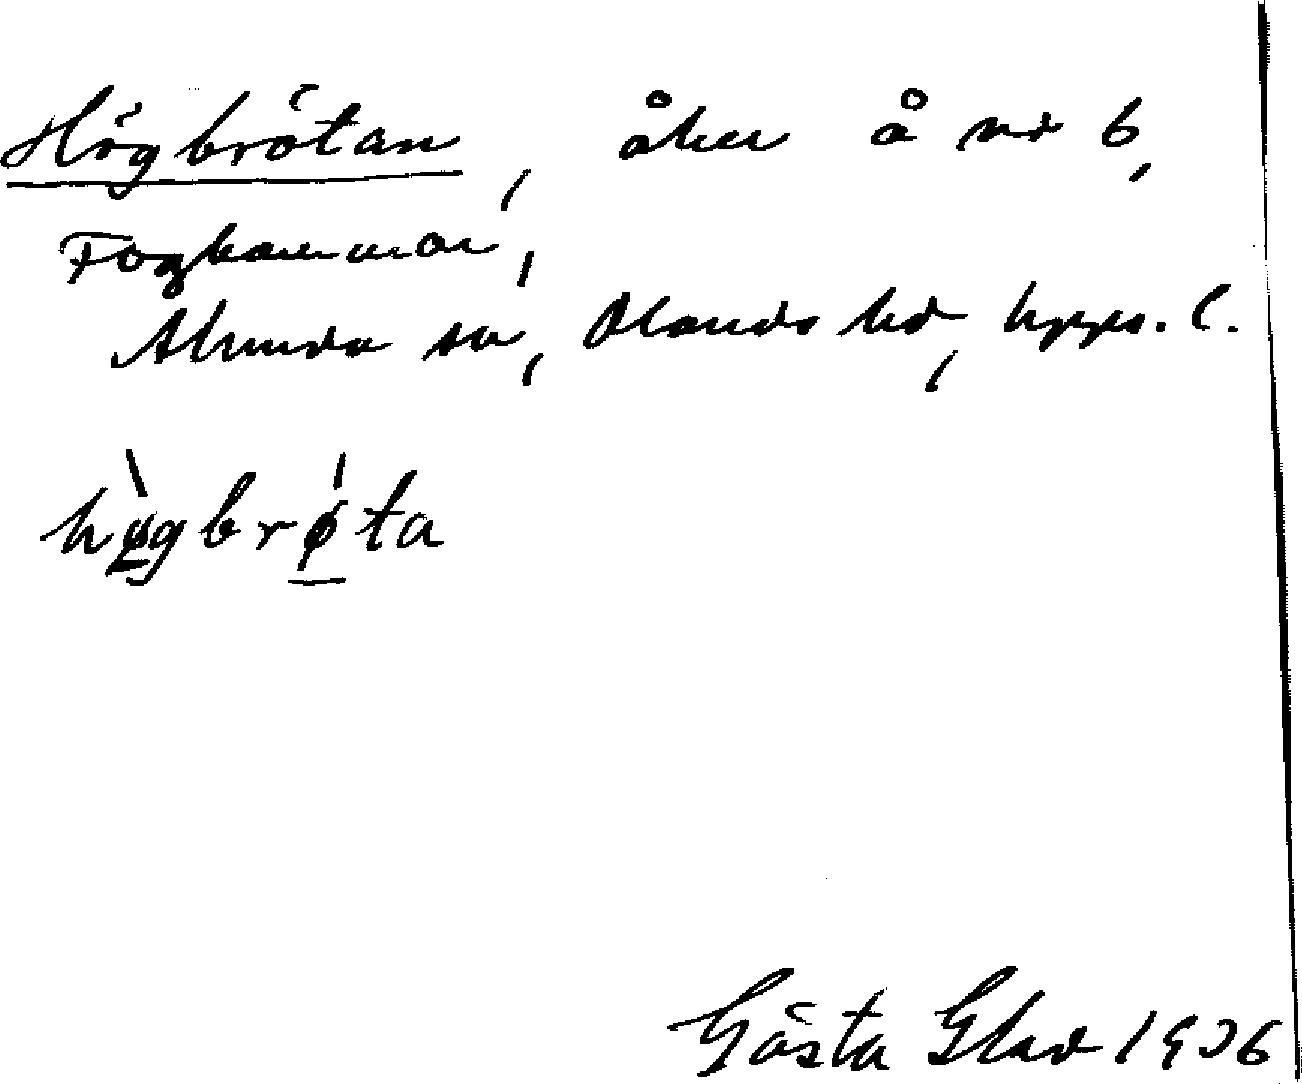 Högbrötan, åker å nr 6,
Foghammar,
Alunda sn, Olands hd, Upps. l.
hø̀gbrǿta
Gösta Glad 1936